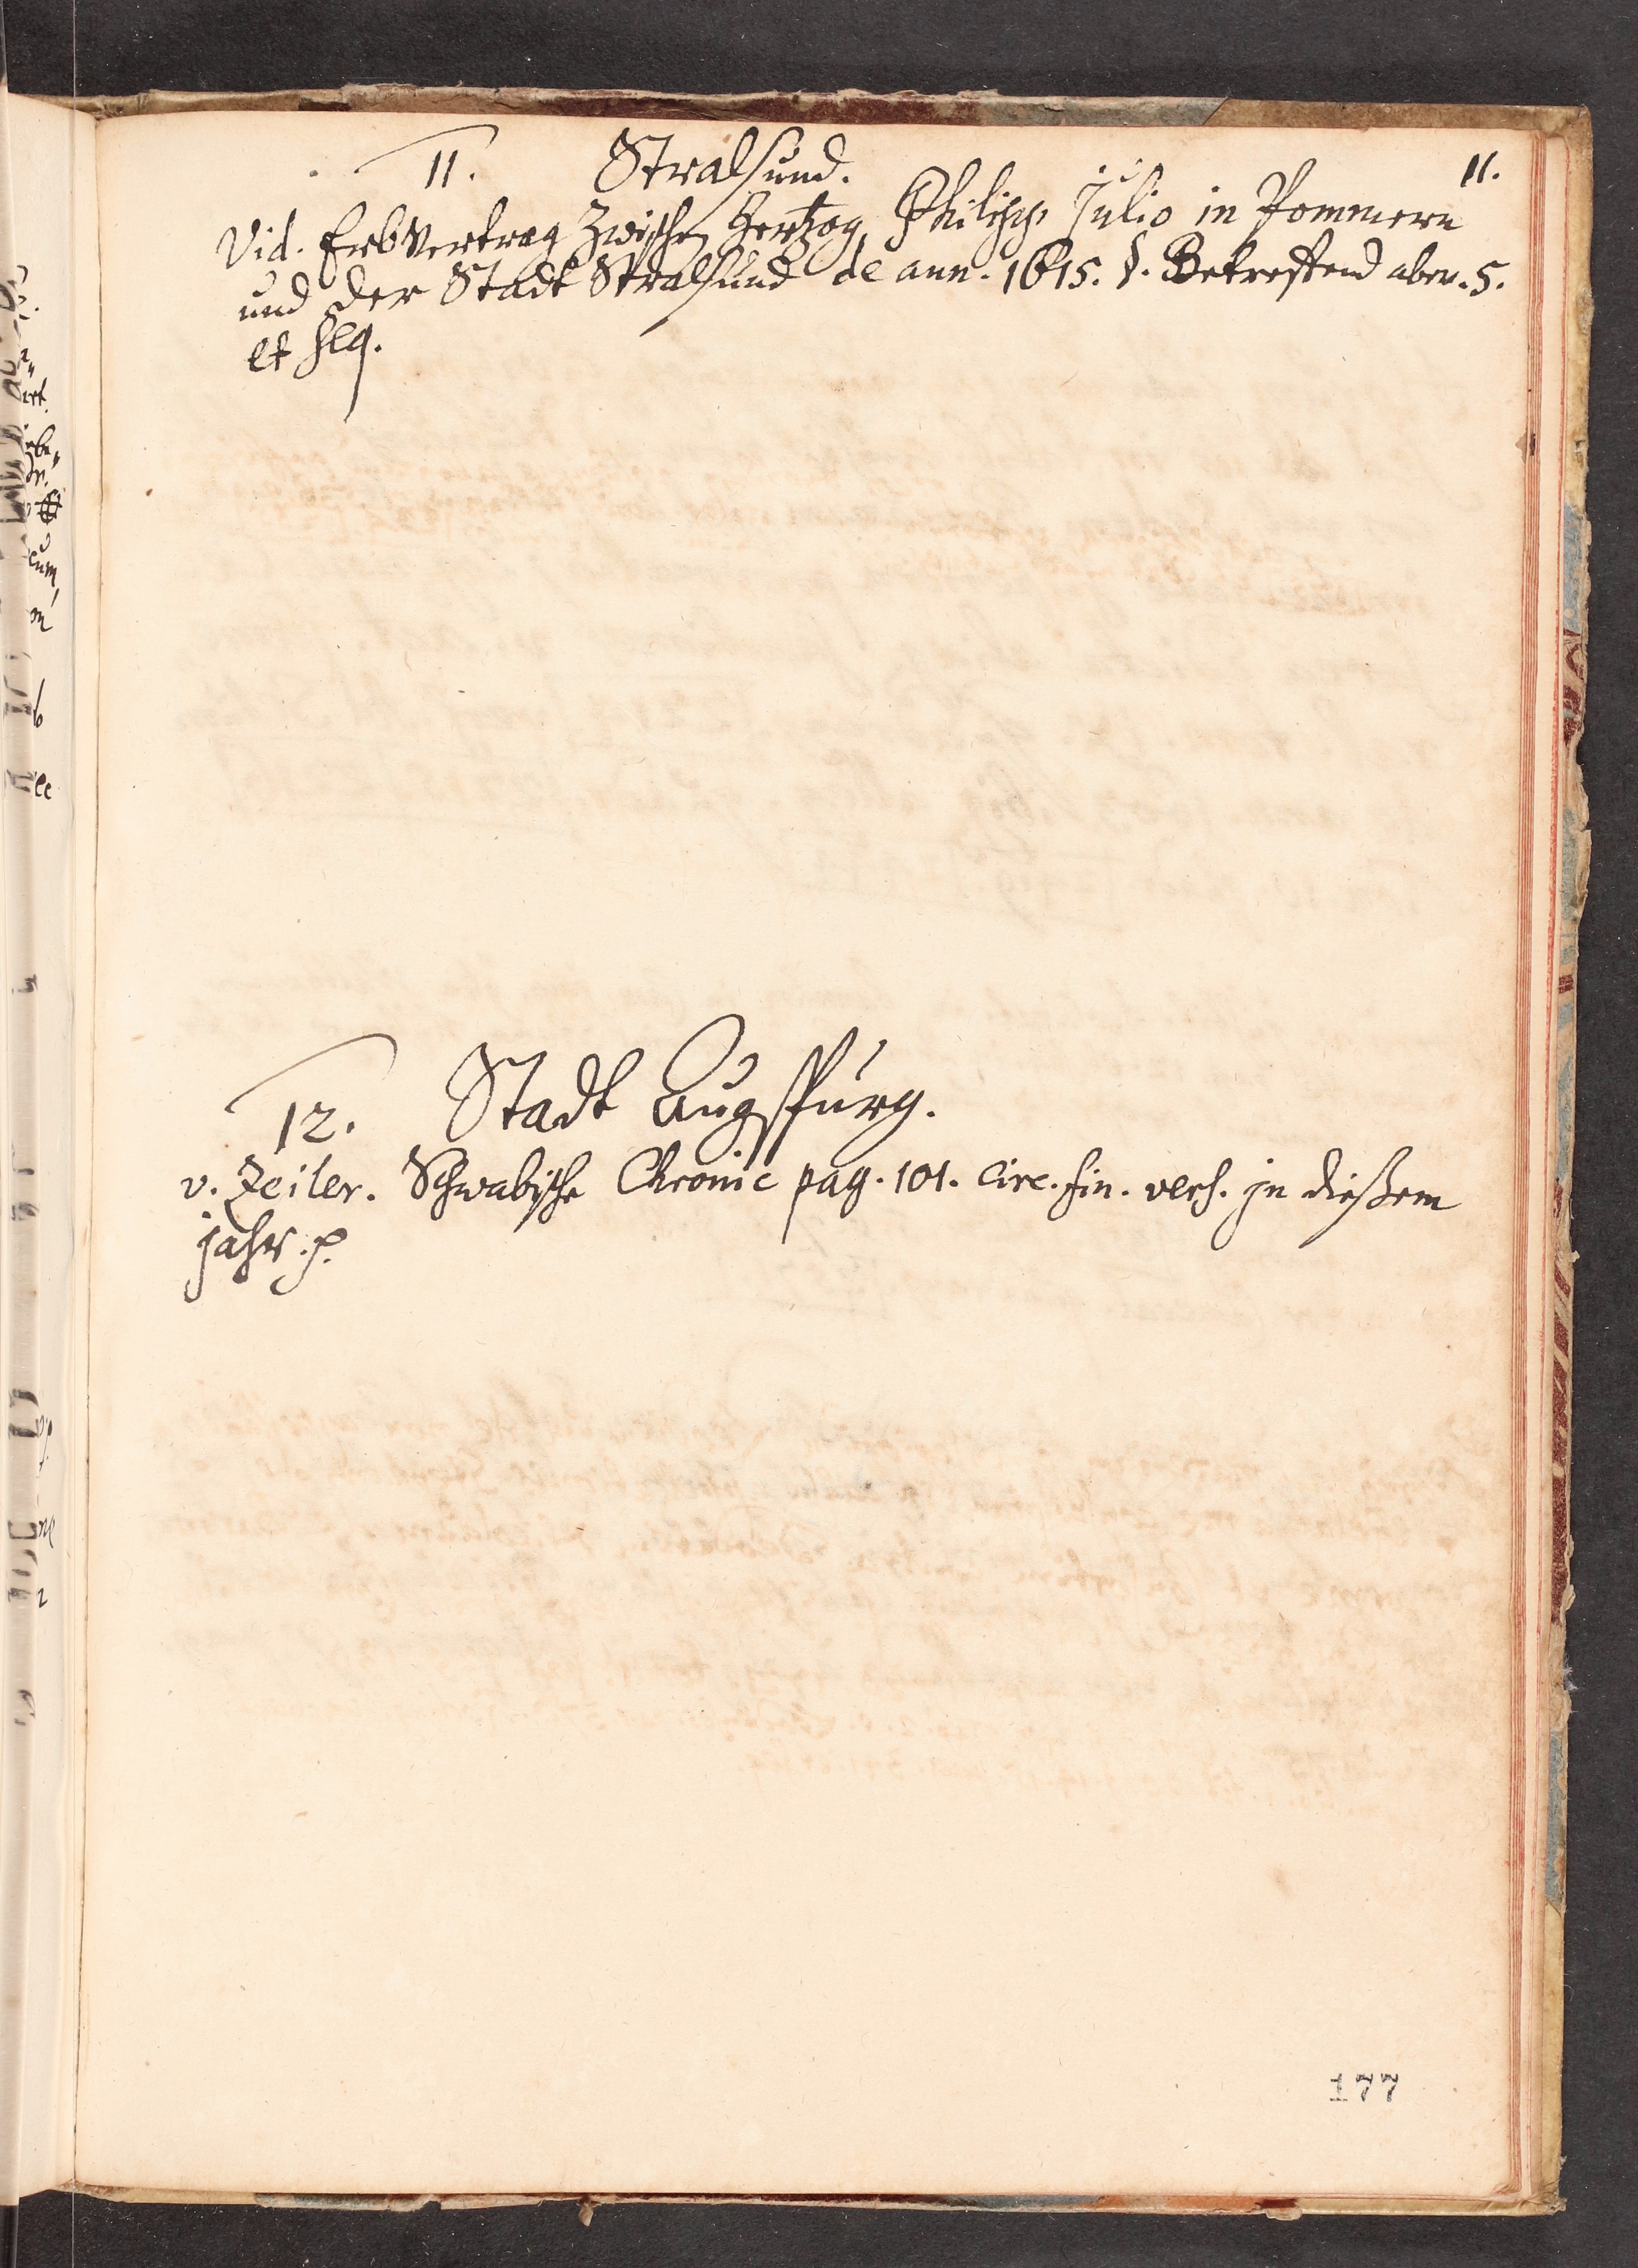 11. Stralsund. 11.
Vid. Erbvertrag Zwischen Hertzog Philipp Julio in Pommern
und der Stadt Stralsund de ann. 1615. §. Betreffend aber. 5.
et seq.
12. Stadt Augspurg.
v. Zeiler. Schwabische Chronic pag. 101. circ. fin. vers. jn dießem
jahr. p.
177